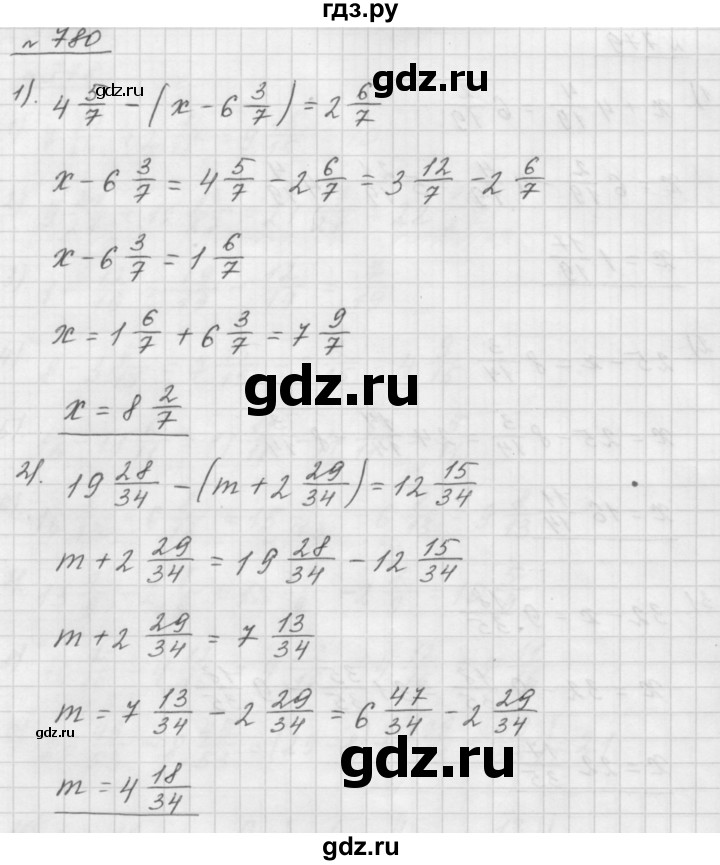 гдз.ру
№ 780
1). 4 5/7 − (x − 6 3/7) = 2 6/7
x − 6 3/7 = 4 5/7 − 2 6/7 = 3 12/7 − 2 6/7
x − 6 3/7 = 1 6/7
x = 1 6/7 + 6 3/7 = 7 9/7
gdz.ru
x = 8 2/7
2). 19 28/34 − (m + 2 29/34) = 12 15/34
m + 2 29/34 = 19 28/34 − 12 15/34
m + 2 29/34 = 7 13/34
m = 7 13/34 − 2 29/34 = 6 47/34 − 2 29/34
gdz.ru
gdz.ru
m = 4 18/34
gdz.ru